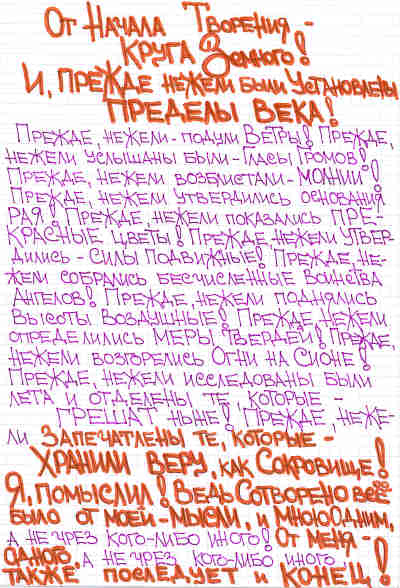 От Начала Творения -
Круга Земного!
И, прежде нежели были Установлены
Пределы Века!
Прежде, нежели - подули Ветры! Прежде,
нежели услышаны были - Гласы Громов!
Прежде, нежели возблистали - Молнии!
Прежде, нежели утвердились основания
Рая! Прежде, нежели показались пре-
красные цветы! Прежде, нежели утвер-
дились - Силы Подвижные! Прежде, не-
жели собрались бесчисленные Воинства
Ангелов! Прежде, нежели поднялись
Высоты Воздушные! Прежде, нежели
определились Меры Твердей! Прежде,
нежели возгорелись Огни на Сионе!
Прежде, нежели исследованы были
лета и отделены те, которые -
грешат ныне! Прежде, неже-
ли Запечатлены те, которые -
Хранили Веру, как Сокровище!
Я, помыслил! Ведь Сотворено все
было от моей - мысли, и Мною Одним,
а не чрез кого-либо иного! От Меня -
Одного, а не чрез кого-либо иного,
также последует и конец!